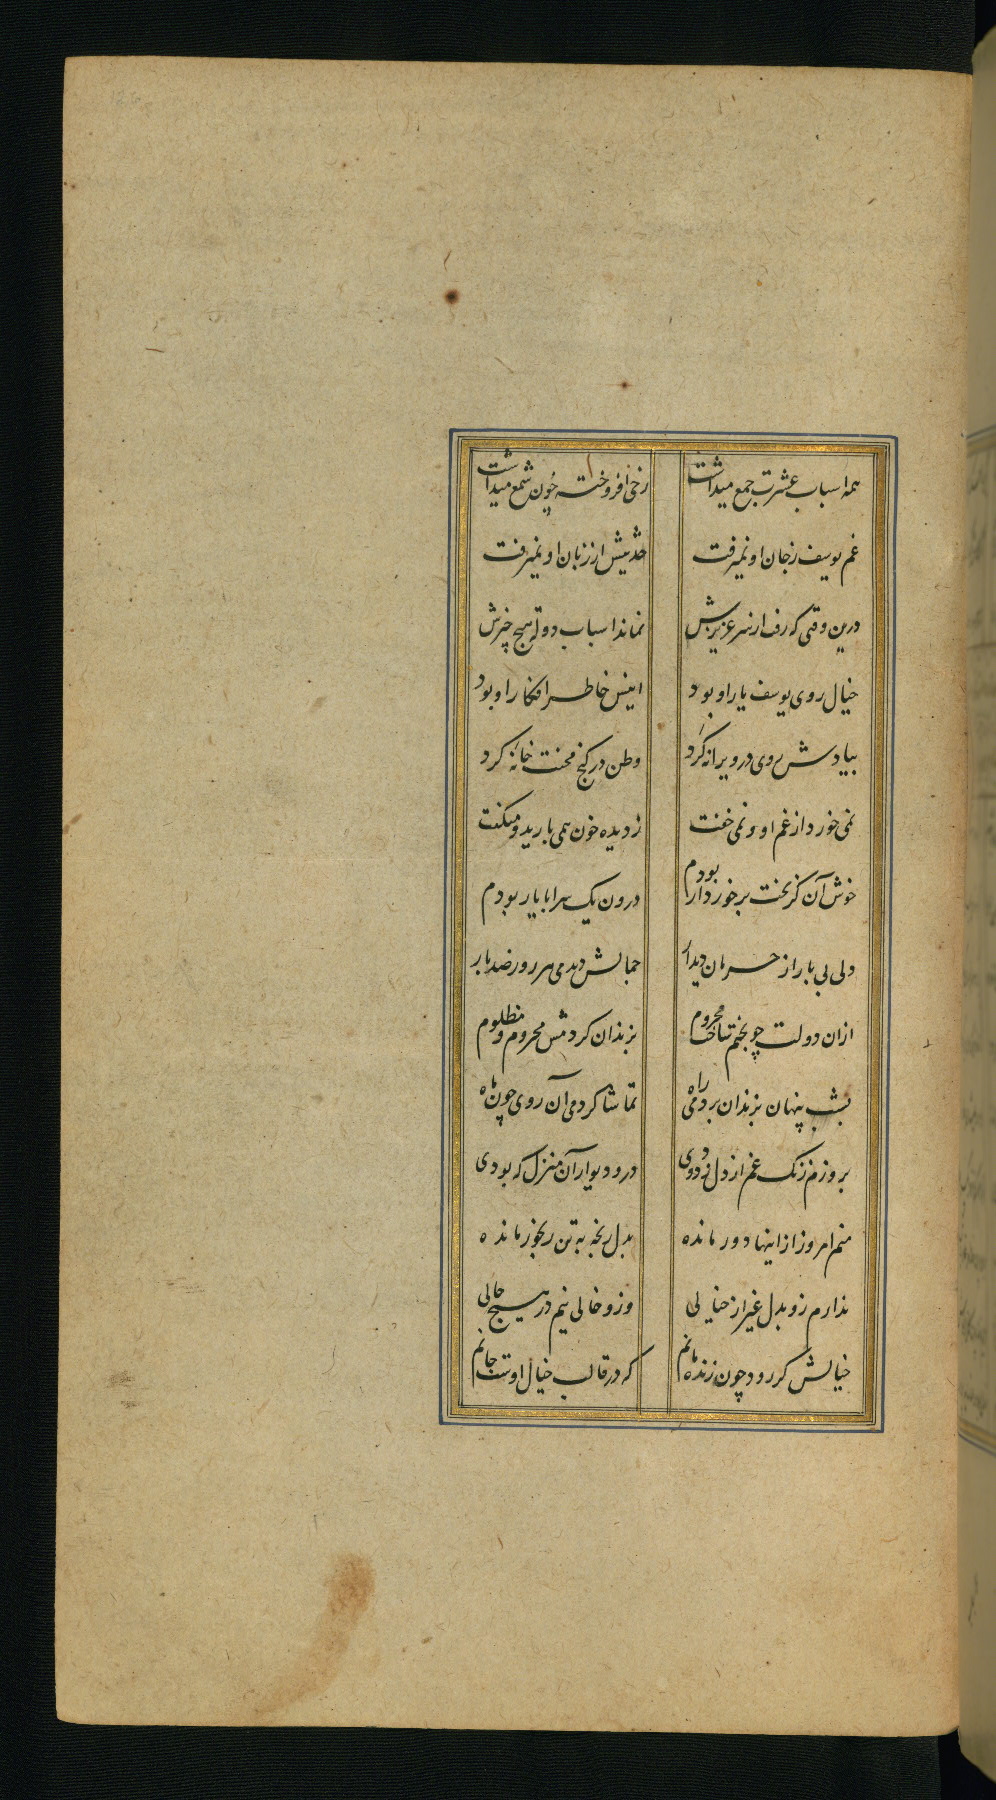 همه اسباب عشرت جمع میداشت رخی افروخته چون شمع میداشت
غم یوسف زجان او نمیرفت حدیثش از زبان او نمیرفت
درین وقتی که رفت از سر عزیزش نماند اسباب دولت هیچ چیزش
خیال روی یوسف یار او بود انیس خاطر افکار او بود
بیادش روی در ویرانه کرد وطن در کنج محنت خانه کرد
نمی خورد از غم او و نمی خفت ز دیده خون همی بارید و میگفت
خوش آن کز بخت برخوردار بودم درون یک سرا با یار بودم
ولی بی بار از حرمان دیدار جمالش دیدمی هر روز صد بار
ازان دولت چو بختم ساخت محروم بزندان کردمش محروم و مظلوم
بشب پنهان بزندان بردمی راه تماشا کردمی آن روی چون ماه
بروزم زنگ غم از دل زدودی در و دیوار آن منزل که بودی
منم امروز از اینها دور مانده بدل رنجه به تن رنجور مانده
ندارم زو بدل غیر از خیالی وزو خالی نیم در هیچ حالی
خیالش گر رود چون زنده مانم که در قالب خیال اوست جانم